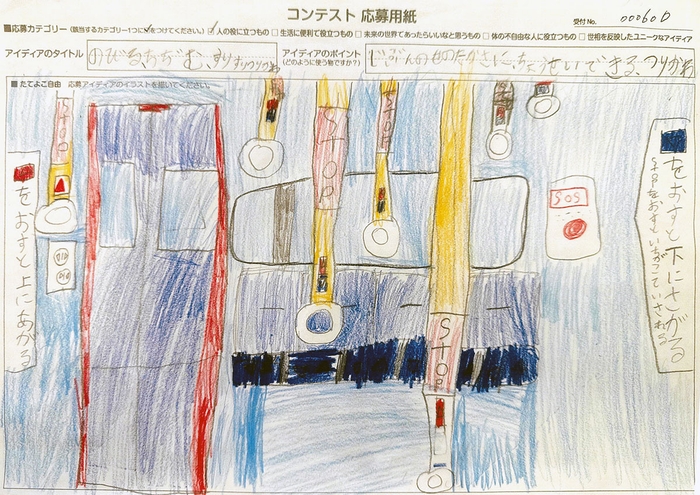 コンテスト 応募用紙
受付No. 00060D
■応募カテゴリー(該当するカテゴリー1つに✓をつけてください。) ☑人の役に立つもの □生活に便利で役立つもの □未来の世界であったらいいなと思うもの □体の不自由な人に役立つもの □世相を反映したユニークなアイディア
アイディアのタイトル のびるちぢむ、
アイディアのポイント (どのように使う物ですか?) じぶんのせのたかさに、ちょうせいできる、つりかわ
■たてよこ自由 応募アイディアのイラストを描いてください。
STOP
STOP
STOP
STOP
SOS
をおすと上にあがる
をおすと下にさがる